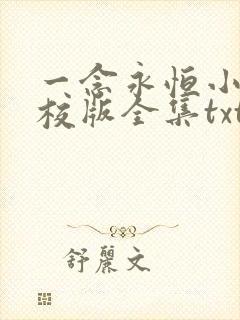 一念永恒小
校版全集txt
舒丽文